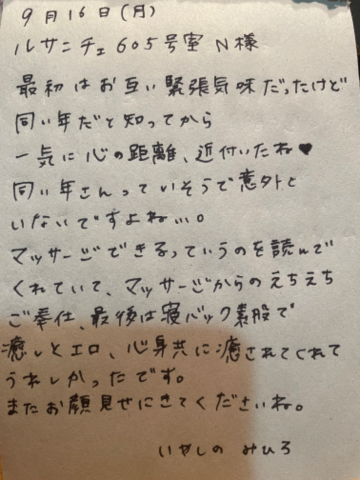 9月16日(月)
ルサンチェ605号室 N様
最初はお互い緊張気味だったけど
同い年だと知ってから
一気に心の距離、近付いたね♥
同い年さんっていそうで意外と
いないですよね…。
マッサージできるっていうのを読んで
くれていて、マッサージからのえちえち
ご奉仕、最後は寝バック素股で
癒しとエロ、心身共に癒されてくれて
うれしかったです。
またお顔見せにきてくださいね。
いやしの みひろ